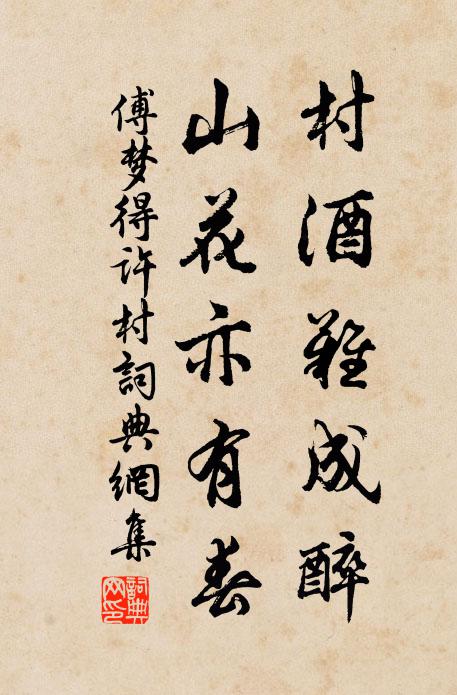 村酒難成醉
山花亦有春
傅梦得許村詞典網集
詞典
网印